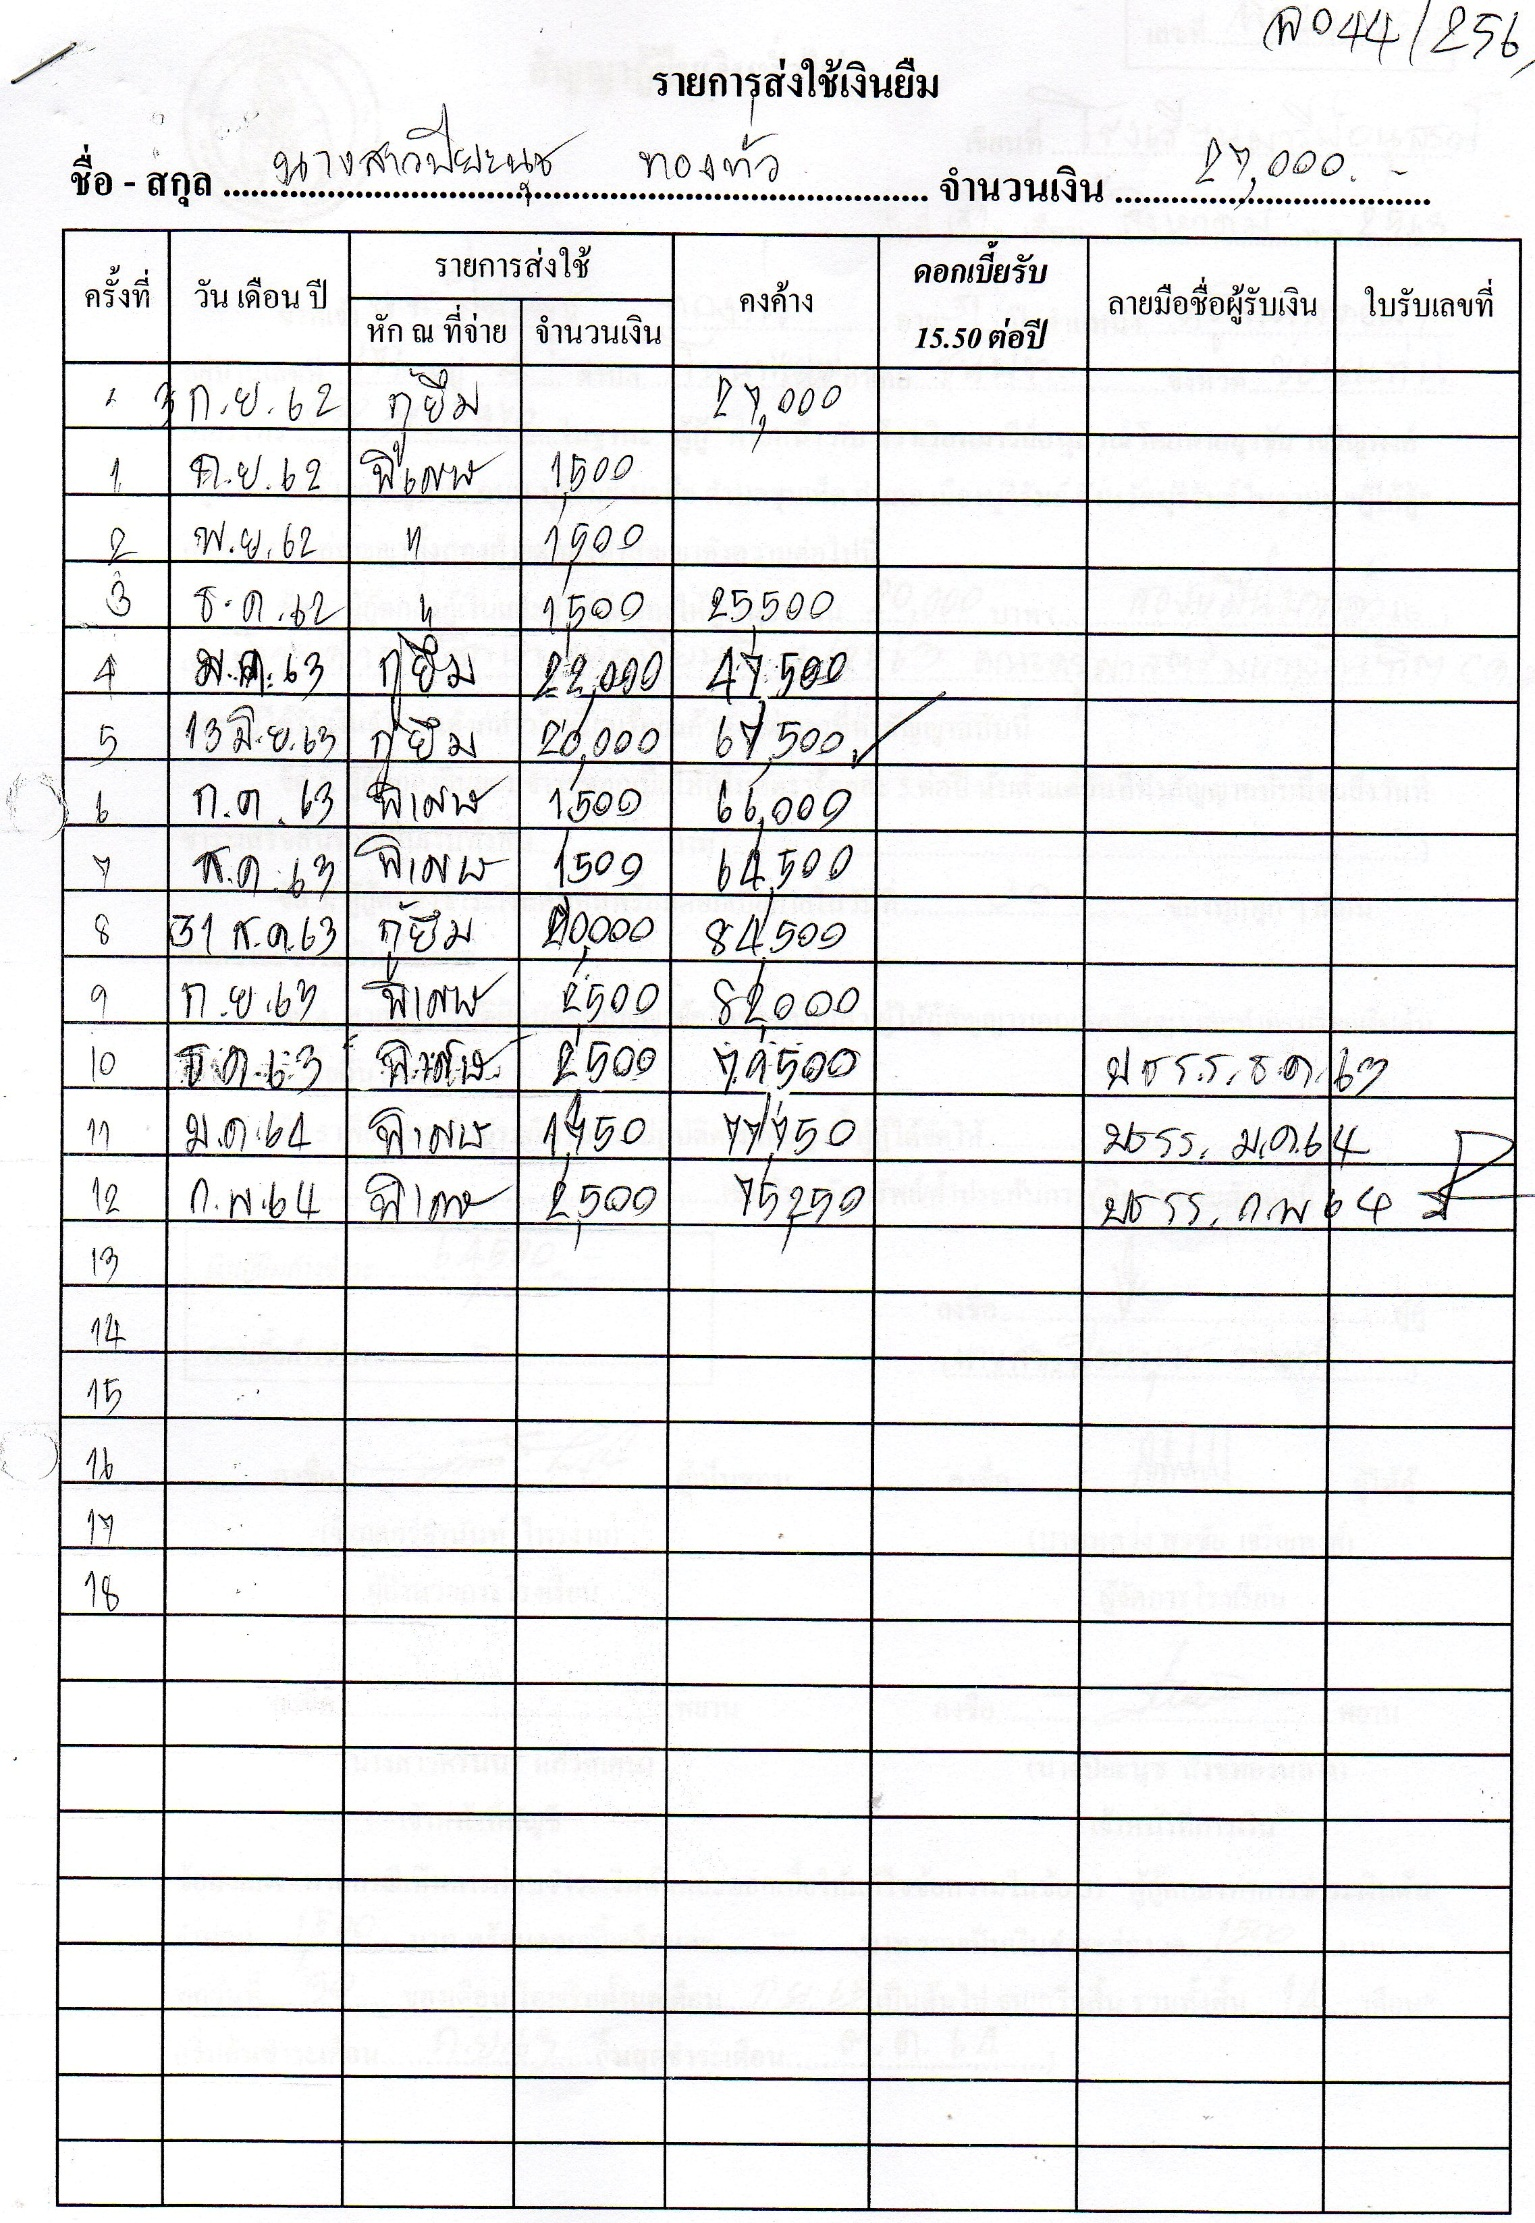 44/256
รายการส่งใช้เงินยืม
ชื่อ - สกุล นางสาวปิยะนุช ทองทัว จำนวนเงิน 27,000.-
ครั้งที่ วัน เดือน ปี รายการส่งใช้ คงค้าง ดอกเบี้ยรับ 15.50 ต่อปี ลายมือชื่อผู้รับเงิน ใบรับเลขที่
หัก ณ ที่จ่าย จำนวนเงิน
3 ก.ย. 62 กู้ยืม 27,000
1 ก.ย. 62 พิเศษ 1,500
2 พ.ย. 62 " 1,500
3 ธ.ค. 62 " 1,500 25,500
4 ม.ค. 63 กู้ยืม 22,000 47,500
5 13 มิ.ย. 63 กู้ยืม 20,000 67,500
6 ก.ค. 63 พิเศษ 1,500 66,000
7 ส.ค. 63 พิเศษ 1,500 64,500
8 31 ส.ค. 63 กู้ยืม 20,000 84,500
9 ก.ย. 63 พิเศษ 2,500 82,000
10 ธ.ค. 63 พิเศษ 2,500 79,500 ปชรร. ธ.ค. 63
11 ม.ค. 64 พิเศษ 1,750 77,750 ปชรร. ม.ค. 64
12 ก.พ. 64 พิเศษ 2,500 75,250 ปชรร. ก.พ 64
13
14
15
16
17
18